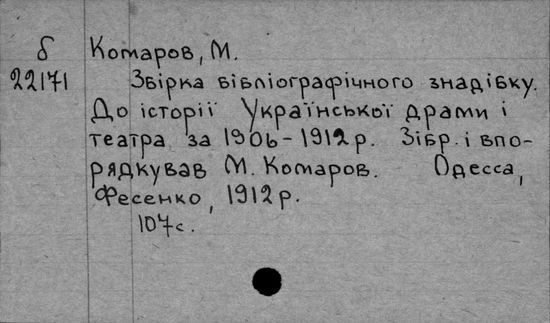 б Комаров, М.
22171 Збірка бібліографічного знадібку.
До історії Української драми і
театра за 1906-1912 р. Зібр. і впо-
рядкував М. Комаров. Одесса,
Фесенко, 1912 р.
107 с.